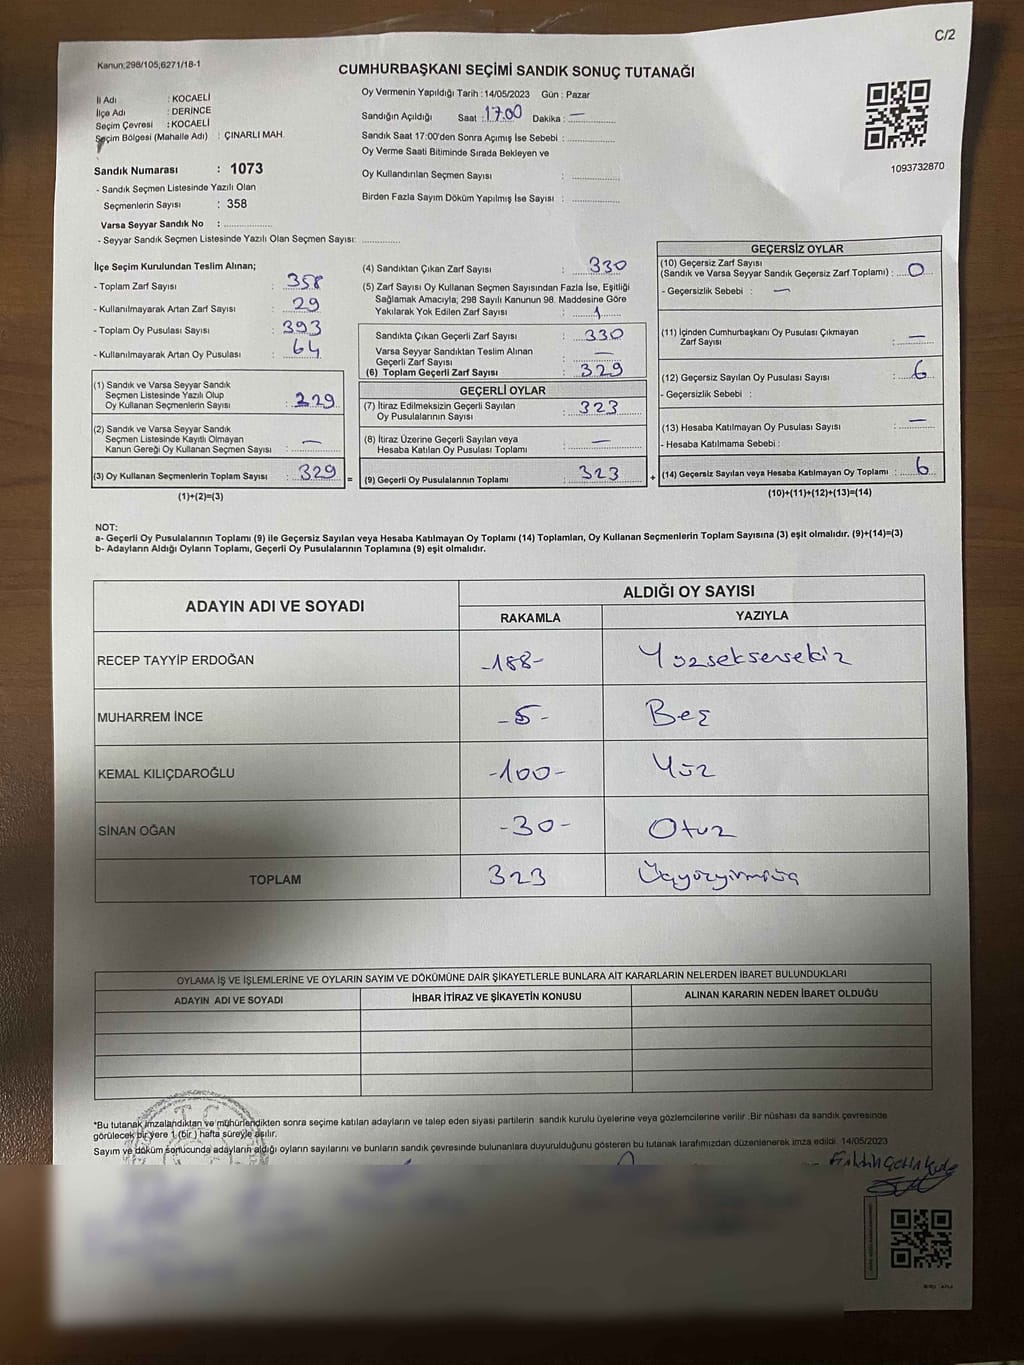 C/2
Kanun;298/105,6271/18-1
CUMHURBAŞKANI SEÇİMİ SANDIK SONUÇ TUTANAĞI
İl Adı : KOCAELİ
İlçe Adı : DERİNCE
Seçim Çevresi : KOCAELİ
Seçim Bölgesi (Mahalle Adı) : ÇINARLI MAH.
Sandık Numarası : 1073
- Sandık Seçmen Listesinde Yazılı Olan
Seçmenlerin Sayısı : 358
Varsa Seyyar Sandık No :
- Seyyar Sandık Seçmen Listesinde Yazılı Olan Seçmen Sayısı:
Oy Vermenin Yapıldığı Tarih : 14/05/2023 Gün : Pazar
Sandığın Açıldığı Saat : 17.00 Dakika : —
Sandık Saat 17:00'den Sonra Açımış İse Sebebi :
Oy Verme Saati Bitiminde Sırada Bekleyen ve
Oy Kullandırılan Seçmen Sayısı :
Birden Fazla Sayım Döküm Yapılmış İse Sayısı :
1093732870
İlçe Seçim Kurulundan Teslim Alınan;
- Toplam Zarf Sayısı : 358
- Kullanılmayarak Artan Zarf Sayısı : 29
- Toplam Oy Pusulası Sayısı : 393
- Kullanılmayarak Artan Oy Pusulası : 64
(1) Sandık ve Varsa Seyyar Sandık
Seçmen Listesinde Yazılı Olup
Oy Kullanan Seçmenlerin Sayısı : 329
(2) Sandık ve Varsa Seyyar Sandık
Seçmen Listesinde Kayıtlı Olmayan
Kanun Gereği Oy Kullanan Seçmen Sayısı : —
(3) Oy Kullanan Seçmenlerin Toplam Sayısı : 329 =
(1)+(2)=(3)
(4) Sandıktan Çıkan Zarf Sayısı : 330
(5) Zarf Sayısı Oy Kullanan Seçmen Sayısından Fazla İse, Eşitliği
Sağlamak Amacıyla; 298 Sayılı Kanunun 98. Maddesine Göre
Yakılarak Yok Edilen Zarf Sayısı : 1
Sandıkta Çıkan Geçerli Zarf Sayısı : 330
Varsa Seyyar Sandıktan Teslim Alınan
Geçerli Zarf Sayısı : —
(6) Toplam Geçerli Zarf Sayısı : 329
GEÇERLİ OYLAR
(7) İtiraz Edilmeksizin Geçerli Sayılan
Oy Pusulalarının Sayısı : 323
(8) İtiraz Üzerine Geçerli Sayılan veya
Hesaba Katılan Oy Pusulaları Toplamı : —
(9) Geçerli Oy Pusulalarının Toplamı : 323 +
GEÇERSİZ OYLAR
(10) Geçersiz Zarf Sayısı
(Sandık ve Varsa Seyyar Sandık Geçersiz Zarf Toplamı) : 0
- Geçersizlik Sebebi : —
(11) İçinden Cumhurbaşkanı Oy Pusulası Çıkmayan
Zarf Sayısı : —
(12) Geçersiz Sayılan Oy Pusulası Sayısı : 6
- Geçersizlik Sebebi :
(13) Hesaba Katılmayan Oy Pusulası Sayısı : —
- Hesaba Katılmama Sebebi :
(14) Geçersiz Sayılan veya Hesaba Katılmayan Oy Toplamı : 6
(10)+(11)+(12)+(13)=(14)
NOT:
a- Geçerli Oy Pusulalarının Toplamı (9) ile Geçersiz Sayılan veya Hesaba Katılmayan Oy Toplamı (14) Toplamları, Oy Kullanan Seçmenlerin Toplam Sayısına (3) eşit olmalıdır. (9)+(14)=(3)
b- Adayların Aldığı Oyların Toplamı, Geçerli Oy Pusulalarının Toplamına (9) eşit olmalıdır.
ADAYIN ADI VE SOYADI ALDIĞI OY SAYISI
RAKAMLA YAZIYLA
RECEP TAYYİP ERDOĞAN -188- Yüzseksensekiz
MUHARREM İNCE -5- Beş
KEMAL KILIÇDAROĞLU -100- Yüz
SİNAN OĞAN -30- Otuz
TOPLAM 323 Üçyüzyirmiüç
OYLAMA İŞ VE İŞLEMLERİNE VE OYLARIN SAYIM VE DÖKÜMÜNE DAİR ŞİKAYETLERLE BUNLARA AİT KARARLARIN NELERDEN İBARET BULUNDUKLARI
ADAYIN ADI VE SOYADI İHBAR İTİRAZ VE ŞİKAYETİN KONUSU ALINAN KARARIN NEDEN İBARET OLDUĞU
T.C.
*Bu tutanak imzalandıktan ve mühürlendikten sonra seçime katılan adayların ve talep eden siyasi partilerin sandık kurulu üyelerine veya gözlemcilerine verilir .Bir nüshası da sandık çevresinde
görülecek bir yere 1 (bir ) hafta süreyle asılır.
Sayım ve döküm sonucunda adayların aldığı oyların sayılarını ve bunların sandık çevresinde bulunanlara duyurulduğunu gösteren bu tutanak tarafımızdan düzenlenerek imza edildi. 14/05/2023